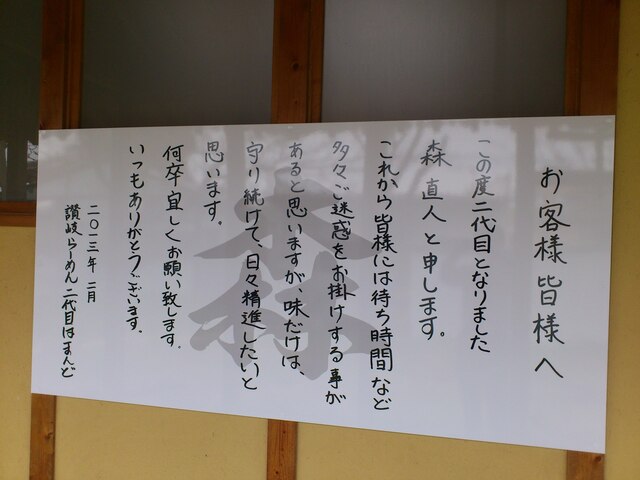 お客様皆様へ
この度二代目となりました
森 直人と申します。
これから皆様には待ち時間など
多々ご迷惑をお掛けする事が
あると思いますが、味だけは、
守り続けて、日々精進したいと
思います。
何卒宜しくお願い致します。
いつもありがとうございます。
二〇一三年 二月
讃岐らーめん 二代目はまんど
森